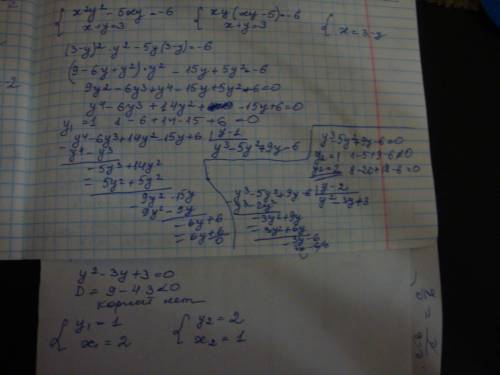 { x²y² - 5xy = -6 { xy(xy-5) = -6 {
x+y=3 x+y=3 x=3-y
(3-y)² y² - 5y(3-y) = -6
(9-6y+y²)·y² - 15y + 5y² = -6
9y² - 6y³ + y⁴ - 15y + 5y² + 6 = 0
y⁴ - 6y³ + 14y² - 15y + 6 = 0
y₁ = 1 1 - 6 + 14 - 15 + 6 = 0
y⁴ - 6y³ + 14y² - 15y + 6 | y-1
y⁴ - y³ y³ - 5y² + 9y - 6
-5y³ + 14y²
-5y³ + 5y²
9y² - 15y
9y² - 9y
-6y + 6
-6y + 6
0
y³ - 5y² + 9y - 6 = 0
y₁ = 1 1 - 5 + 9 - 6 ≠ 0
y₂ = 2 8 - 20 + 18 - 6 = 0
y³ - 5y² + 9y - 6 | y-2
y³ - 2y² y² - 3y + 3
-3y² + 9y
-3y² + 6y
3y - 6
y² - 3y + 3 = 0
D = 9 - 4·3 < 0
корней нет
{ y₁ = 1 { y₂ = 2
x₁ = 2 x₂ = 1